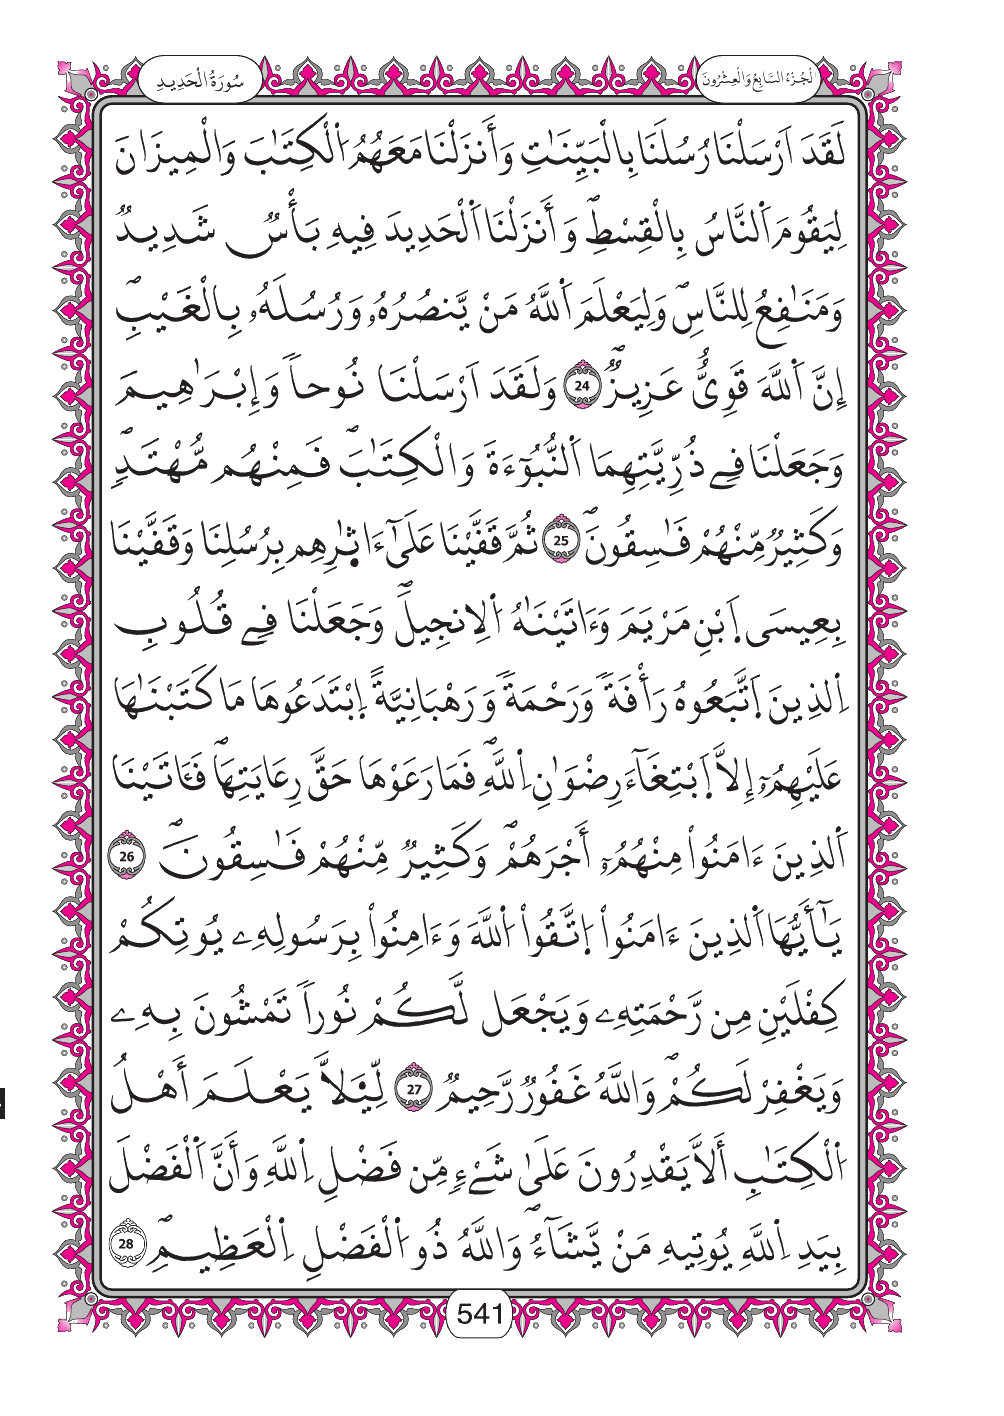 الجُزْءُ السَّابِعُ وَالْعِشْرُونَ
سُورَةُ الْحَدِيدِ
لَقَدَ اَرْسَلْنَا رُسُلَنَا بِالْبَيِّنَٰتِ وَأَنزَلْنَا مَعَهُمُ اُ۬لْكِتَٰبَ وَالْمِيزَانَ
لِيَقُومَ اَ۬لنَّاسُ بِالْقِسْطِۖ وَأَنزَلْنَا اَ۬لْحَدِيدَ فِيهِ بَأْسٞ شَدِيدٞ
وَمَنَٰفِعُ لِلنَّاسِۖ وَلِيَعْلَمَ اَ۬للَّهُ مَنْ يَّنصُرُهُۥ وَرُسُلَهُۥ بِالْغَيْبِۖ
إِنَّ اَ۬للَّهَ قَوِيٌّ عَزِيزٞۖ 24 وَلَقَدَ اَرْسَلْنَا نُوحاٗ وَإِبْرَٰهِيمَ
وَجَعَلْنَا فِے ذُرِّيَّتِهِمَا اَ۬لنُّبُوٓءَةَ وَالْكِتَٰبَۖ فَمِنْهُم مُّهْتَدٖۖ
وَكَثِيرٞ مِّنْهُمْ فَٰسِقُونَۖ 25 ثُمَّ قَفَّيْنَا عَلَىٰٓ ءَاثٰ۪رِهِم بِرُسُلِنَا وَقَفَّيْنَا
بِعِيسَى اَ۪بْنِ مَرْيَمَ وَءَاتَيْنَٰهُ اُ۬لِانجِيلَۖ وَجَعَلْنَا فِے قُلُوبِ
اِ۬لذِينَ اَ۪تَّبَعُوهُ رَأْفَةٗ وَرَحْمَةٗۖ وَرَهْبَانِيَّةً اِ۪بْتَدَعُوهَا مَا كَتَبْنَٰهَا
عَلَيْهِمُۥٓ إِلَّا اَ۪بْتِغَآءَ رِضْوَٰنِ اِ۬للَّهِۖ فَمَا رَعَوْهَا حَقَّ رِعَايَتِهَاۖ فَـَٔاتَيْنَا
اَ۬لذِينَ ءَامَنُواْ مِنْهُمُۥٓ أَجْرَهُمْۖ وَكَثِيرٞ مِّنْهُمْ فَٰسِقُونَۖ 26
يَٰٓأَيُّهَا اَ۬لذِينَ ءَامَنُواْ اُ۪تَّقُواْ اُ۬للَّهَ وَءَامِنُواْ بِرَسُولِهِۦ يُوتِكُمْ
كِفْلَيْنِ مِن رَّحْمَتِهِۦ وَيَجْعَل لَّكُمْ نُوراٗ تَمْشُونَ بِهِۦ
وَيَغْفِرْ لَكُمْۖ وَاللَّهُ غَفُورٞ رَّحِيمٞ 27 لِّيَ۬لَّا يَعْلَمَ أَهْلُ
اُ۬لْكِتَٰبِ أَلَّا يَقْدِرُونَ عَلَىٰ شَےْءٖ مِّن فَضْلِ اِ۬للَّهِ وَأَنَّ اَ۬لْفَضْلَ
بِيَدِ اِ۬للَّهِ يُوتِيهِ مَنْ يَّشَآءُۖ وَاللَّهُ ذُو اُ۬لْفَضْلِ اِ۬لْعَظِيمِۖ 28
541